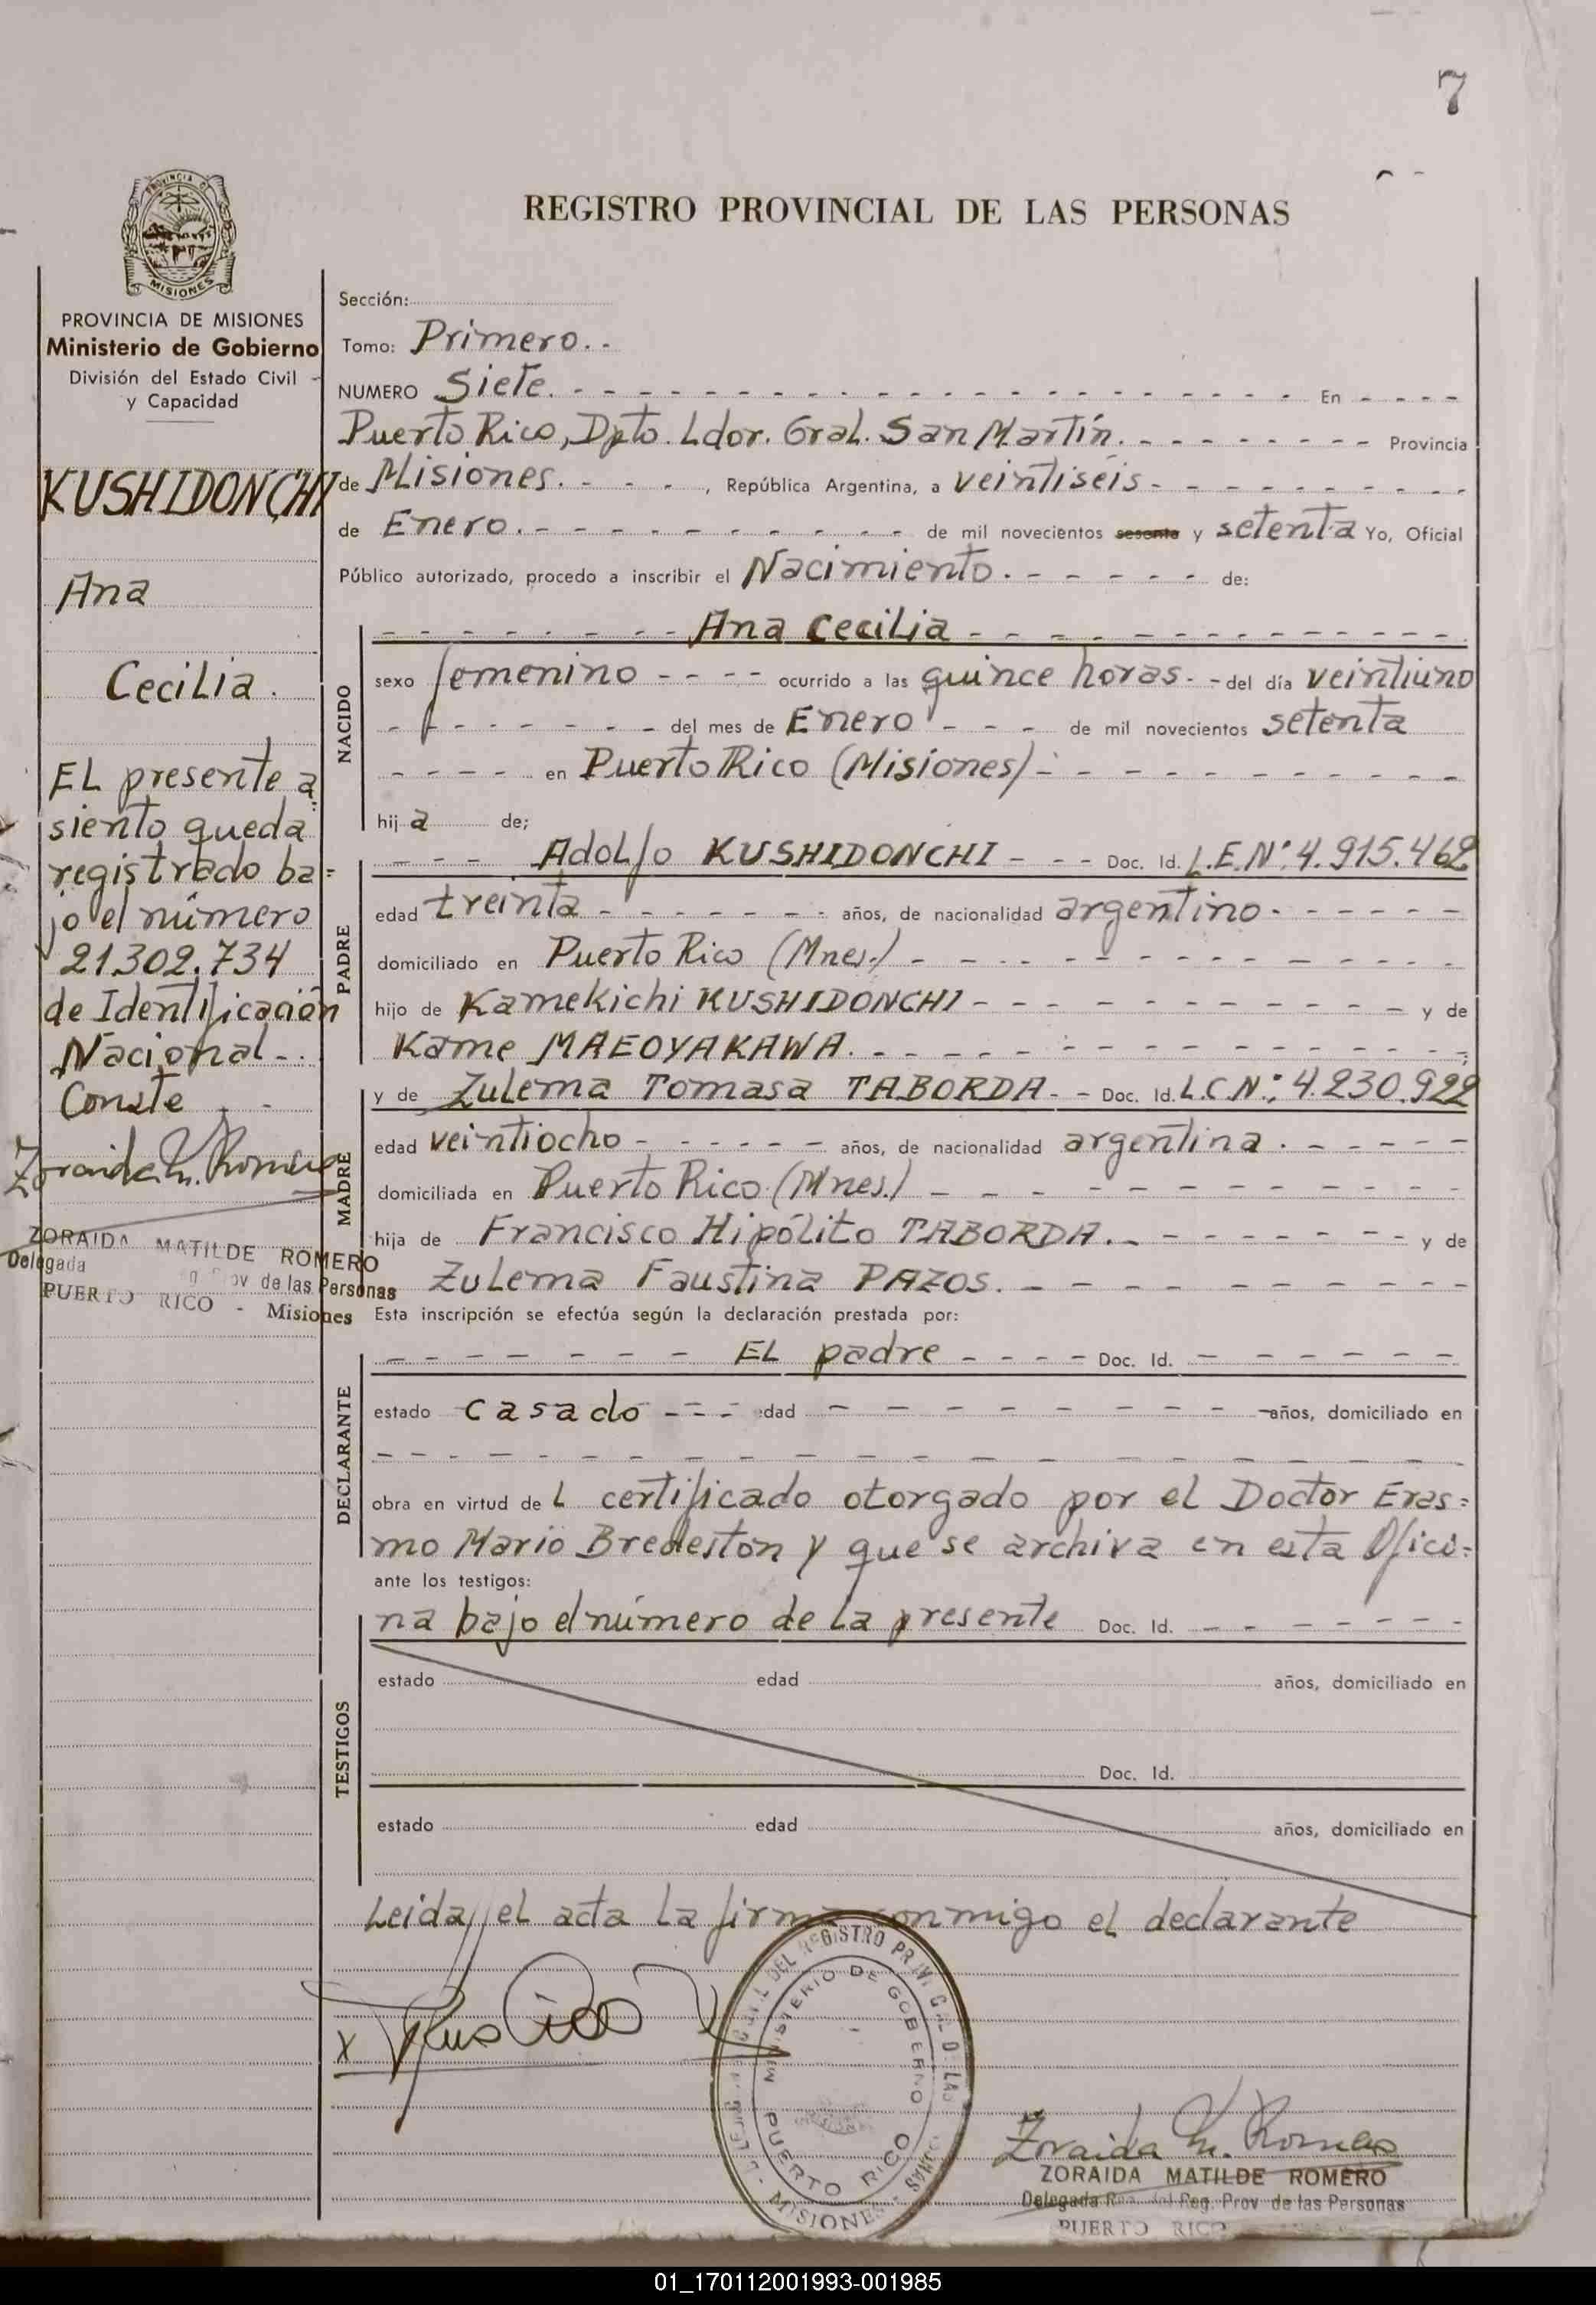 7
REGISTRO PROVINCIAL DE LAS PERSONAS
PROVINCIA DE MISIONES
Ministerio de Gobierno
División del Estado Civil
y Capacidad
KUSHIDONCHI
Ana
Cecilia.
EL presente a
siento queda
registrado ba=
jo el número
21.302.734
de Identificación
Nacional-.
Conste
Zoraida M. Romero
ZORAIDA MATILDE ROMERO
Delegada Prov de las Personas
PUERTO RICO - Misiones
Sección:
Tomo: Primero..
NUMERO Siete. - - - En - - -
Puerto Rico, Dpto. Ldor. Gral. San Martín. - - - Provincia
de Misiones. - - - , República Argentina, a veintiséis - - -
de Enero. - - - de mil novecientos sesenta y setenta Yo, Oficial
Público autorizado, procedo a inscribir el Nacimiento. - - - de:
NACIDO
- - - Ana Cecilia - - -
sexo femenino - - - ocurrido a las quince horas. - del día veintiuno
- - - del mes de Enero - - - de mil novecientos setenta
- - - en Puerto Rico (Misiones) - - -
hij a de;
PADRE
- - - Adolfo KUSHIDONCHI - - - Doc. Id. L.E.Nº 4.915.462
edad treinta - - - años, de nacionalidad argentino. - - -
domiciliado en Puerto Rico (Mnes.) - - -
hijo de Kamekichi KUSHIDONCHI - - - y de
Kame MAEOYAKAWA. - - - ;
MADRE
y de Zulema Tomasa TABORDA. - - Doc. Id. L.C.N.: 4.230.922
edad veintiocho - - - años, de nacionalidad argentina. - - -
domiciliada en Puerto Rico (Mnes.) - - -
hija de Francisco Hipólito TABORDA. - - - y de
Zulema Faustina PAZOS. - - -
Esta inscripción se efectúa según la declaración prestada por:
DECLARANTE
- - - EL padre - - - Doc. Id. - - -
estado casado - - - edad - - - años, domiciliado en
- - -
obra en virtud de L certificado otorgado por el Doctor Eras=
mo Mario Bredeston y que se archiva en esta Ofici=
ante los testigos:
TESTIGOS
na bajo el número de la presente Doc. Id. - - -
estado edad años, domiciliado en
Doc. Id.
estado edad años, domiciliado en
Leida el acta la firma conmigo el declarante
x
DEL REGISTRO PROVINCIAL DE LAS
MINISTERIO DE GOBIERNO
PUERTO RICO
MISIONES
Zoraida M. Romero
ZORAIDA MATILDE ROMERO
Delegada del Reg. Prov. de las Personas
PUERTO RICO
01_170112001993-001985